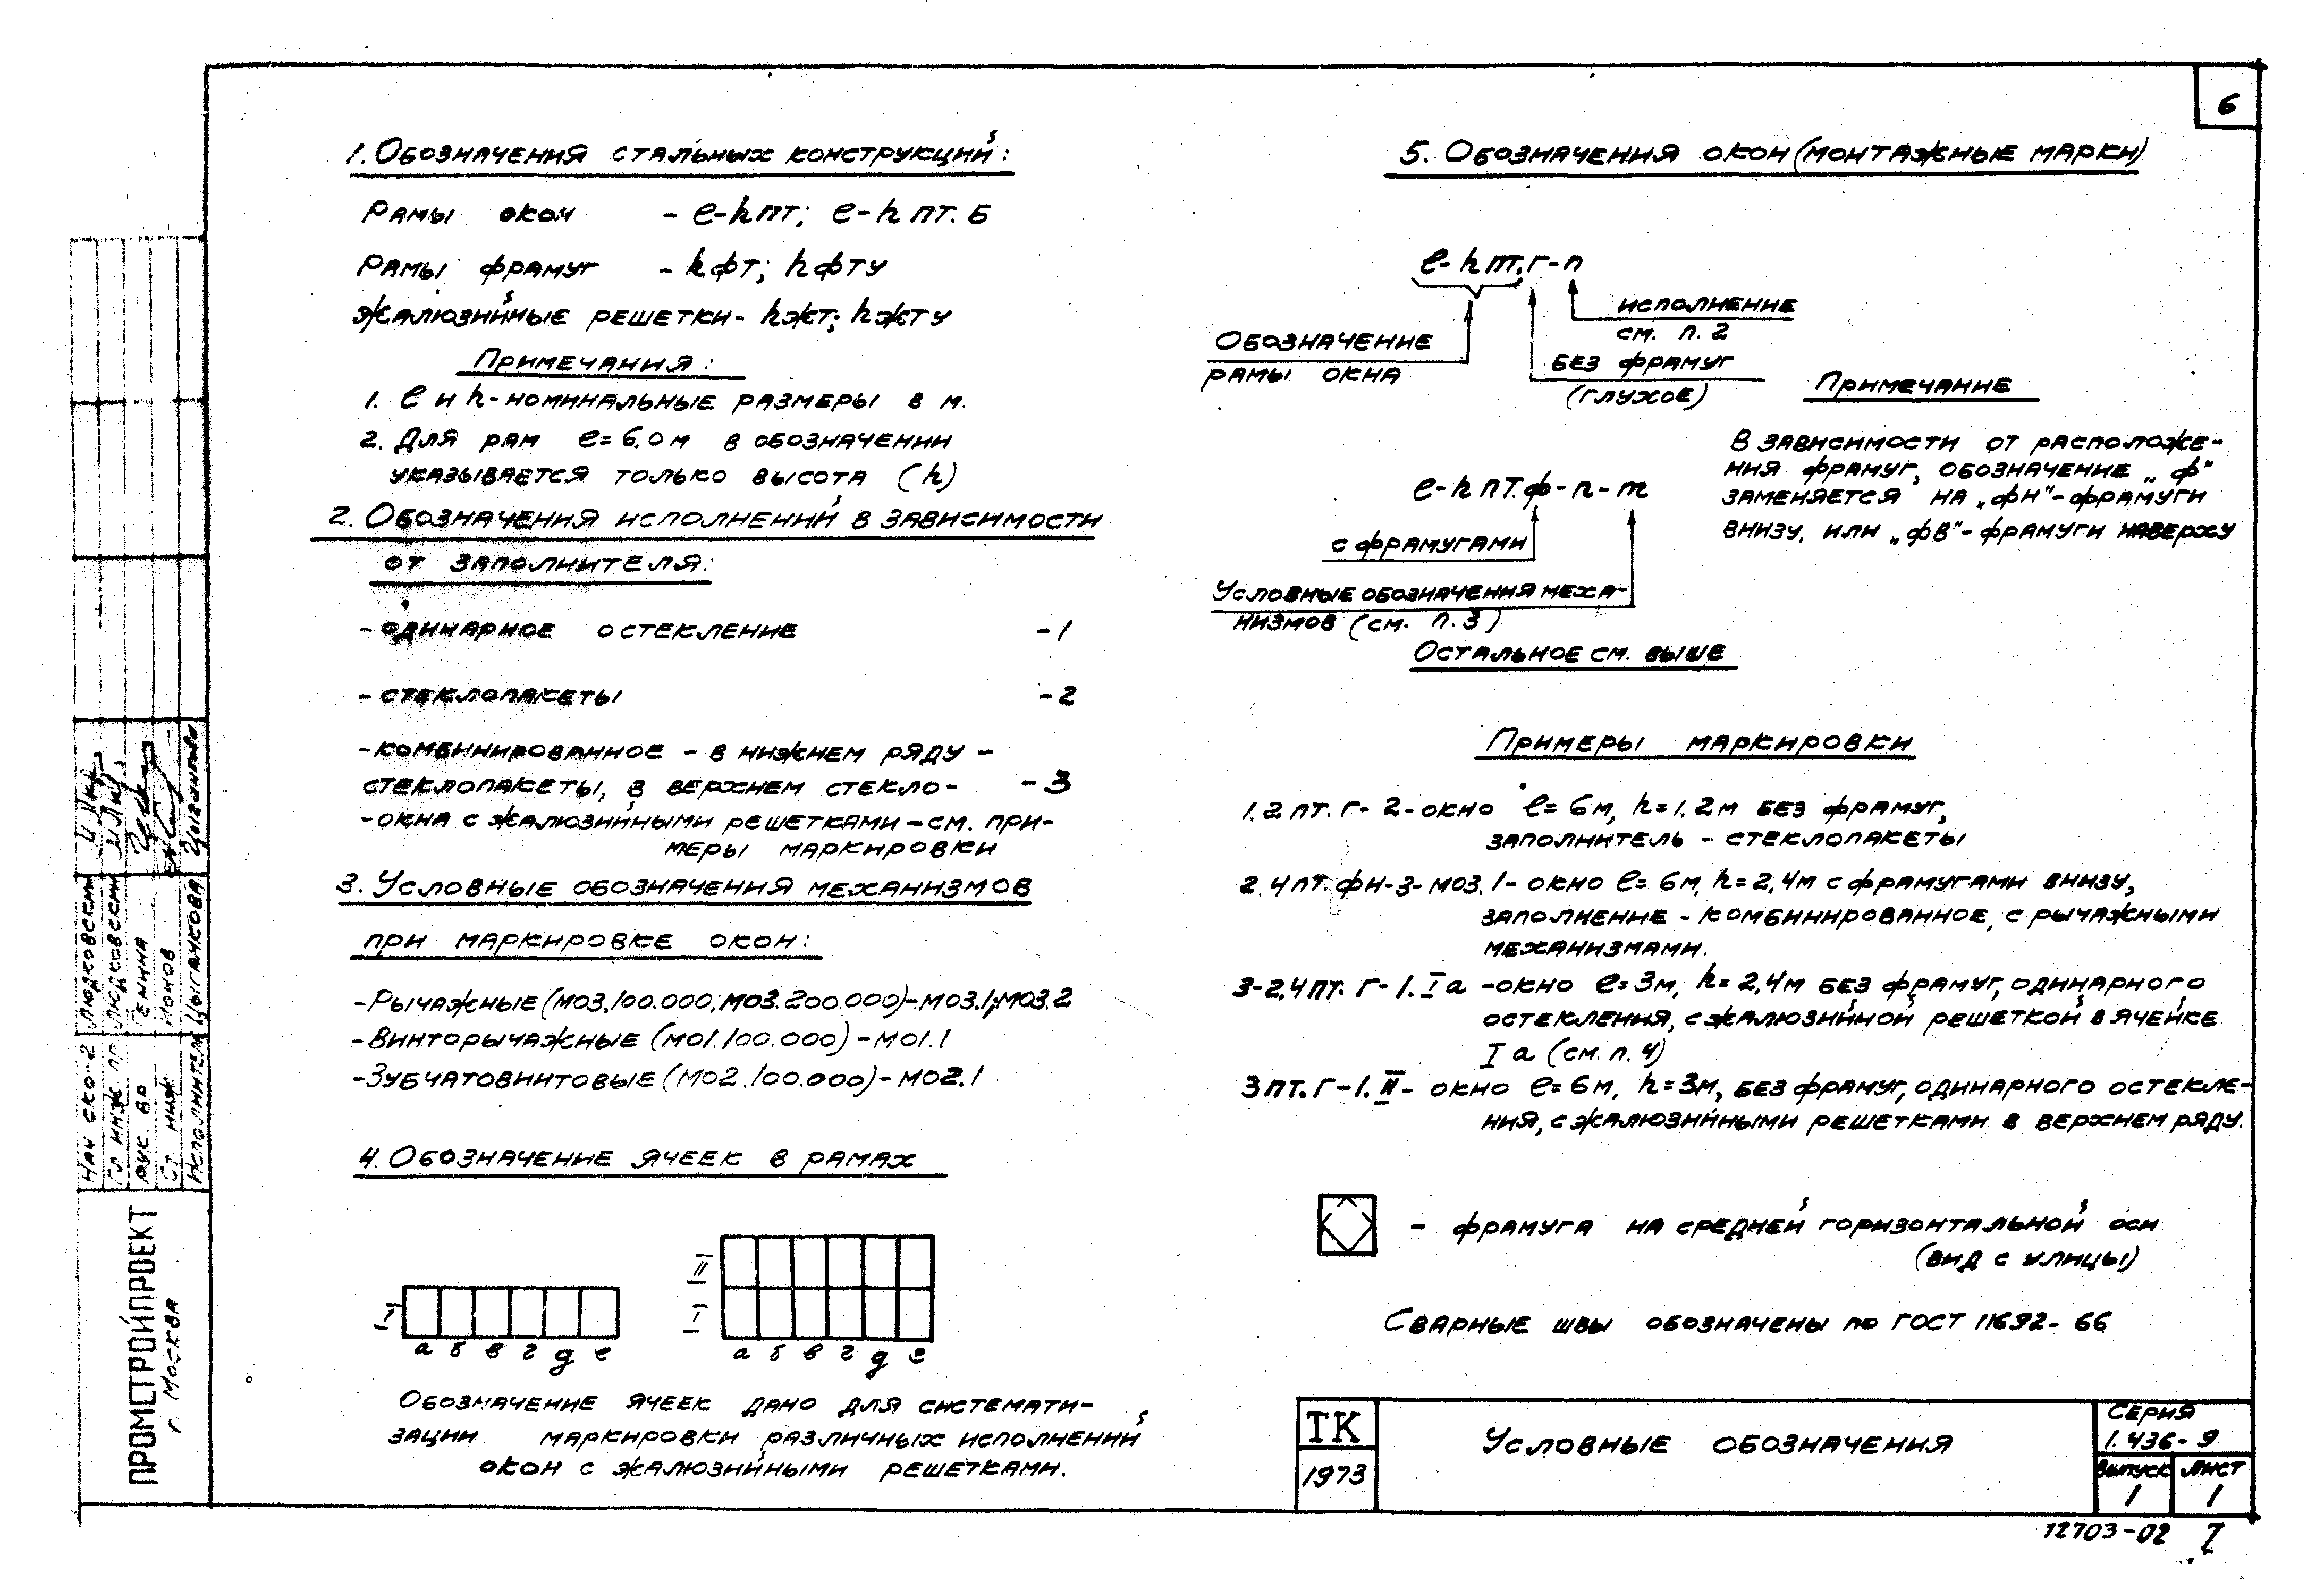 6
1. Обозначения стальных конструкций:
Рамы окон - ℓ-hпт; ℓ-hпт.Б
Рамы фрамуг - hфт; hфту
Жалюзийные решетки - hжт; hжту
Примечания:
1. ℓ и h - номинальные размеры в м.
2. Для рам ℓ=6.0м в обозначении
указывается только высота (h)
2. Обозначения исполнений в зависимости
от заполнителя:
- одинарное остекление -1
- стеклопакеты -2
- комбинированное - в нижнем ряду -
стеклопакеты, в верхнем стекло- -3
- окна с жалюзийными решетками - см. при-
меры маркировки
3. Условные обозначения механизмов
при маркировке окон:
- Рычажные (М03.100.000; М03.200.000) - М03.1; М03.2
- Винторычажные (М01.100.000) - М01.1
- Зубчатовинтовые (М02.100.000) - М02.1
4. Обозначение ячеек в рамах
I
а б в г д е
II
I
а б в г д е
Обозначение ячеек дано для системати-
зации маркировки различных исполнений
окон с жалюзийными решетками.
5. Обозначения окон (монтажные марки)
ℓ-hпт.г-п
исполнение
см. п. 2
Обозначение
рамы окна
без фрамуг
(глухое)
Примечание
В зависимости от расположе-
ния фрамуг, обозначение „ф"
заменяется на „фн"-фрамуги
внизу, или „фв"-фрамуги наверху
ℓ-hпт.ф-п-т
с фрамугами
Условные обозначения меха-
низмов (см. п.3)
Остальное см. выше
Примеры маркировки
1.2пт.г-2 - окно ℓ=6м, h=1.2м без фрамуг,
заполнитель - стеклопакеты
2.4пт.фн-3-М03.1 - окно ℓ=6м, h=2,4м с фрамугами внизу,
заполнение - комбинированное, с рычажными
механизмами.
3-2,4пт.г-1.Iа - окно ℓ=3м, h=2,4м без фрамуг, одинарного
остекления, с жалюзийной решеткой в ячейке
Iа (см. п. 4)
3пт.г-1.II - окно ℓ=6м, h=3м, без фрамуг, одинарного остекле-
ния, с жалюзийными решетками в верхнем ряду.
- фрамуга на средней горизонтальной оси
(вид с улицы)
Сварные швы обозначены по ГОСТ 11692-66
ТК
1973
Условные обозначения
Серия
1.436-9
Выпуск Лист
1 1
12703-02 7
Нач СКО-2 Людковский
Гл инж пр Людковский
Рук. бр Генина
Ст. инж Ионов
Исполнитель Цыганкова
ПРОМСТРОЙПРОЕКТ
г. Москва